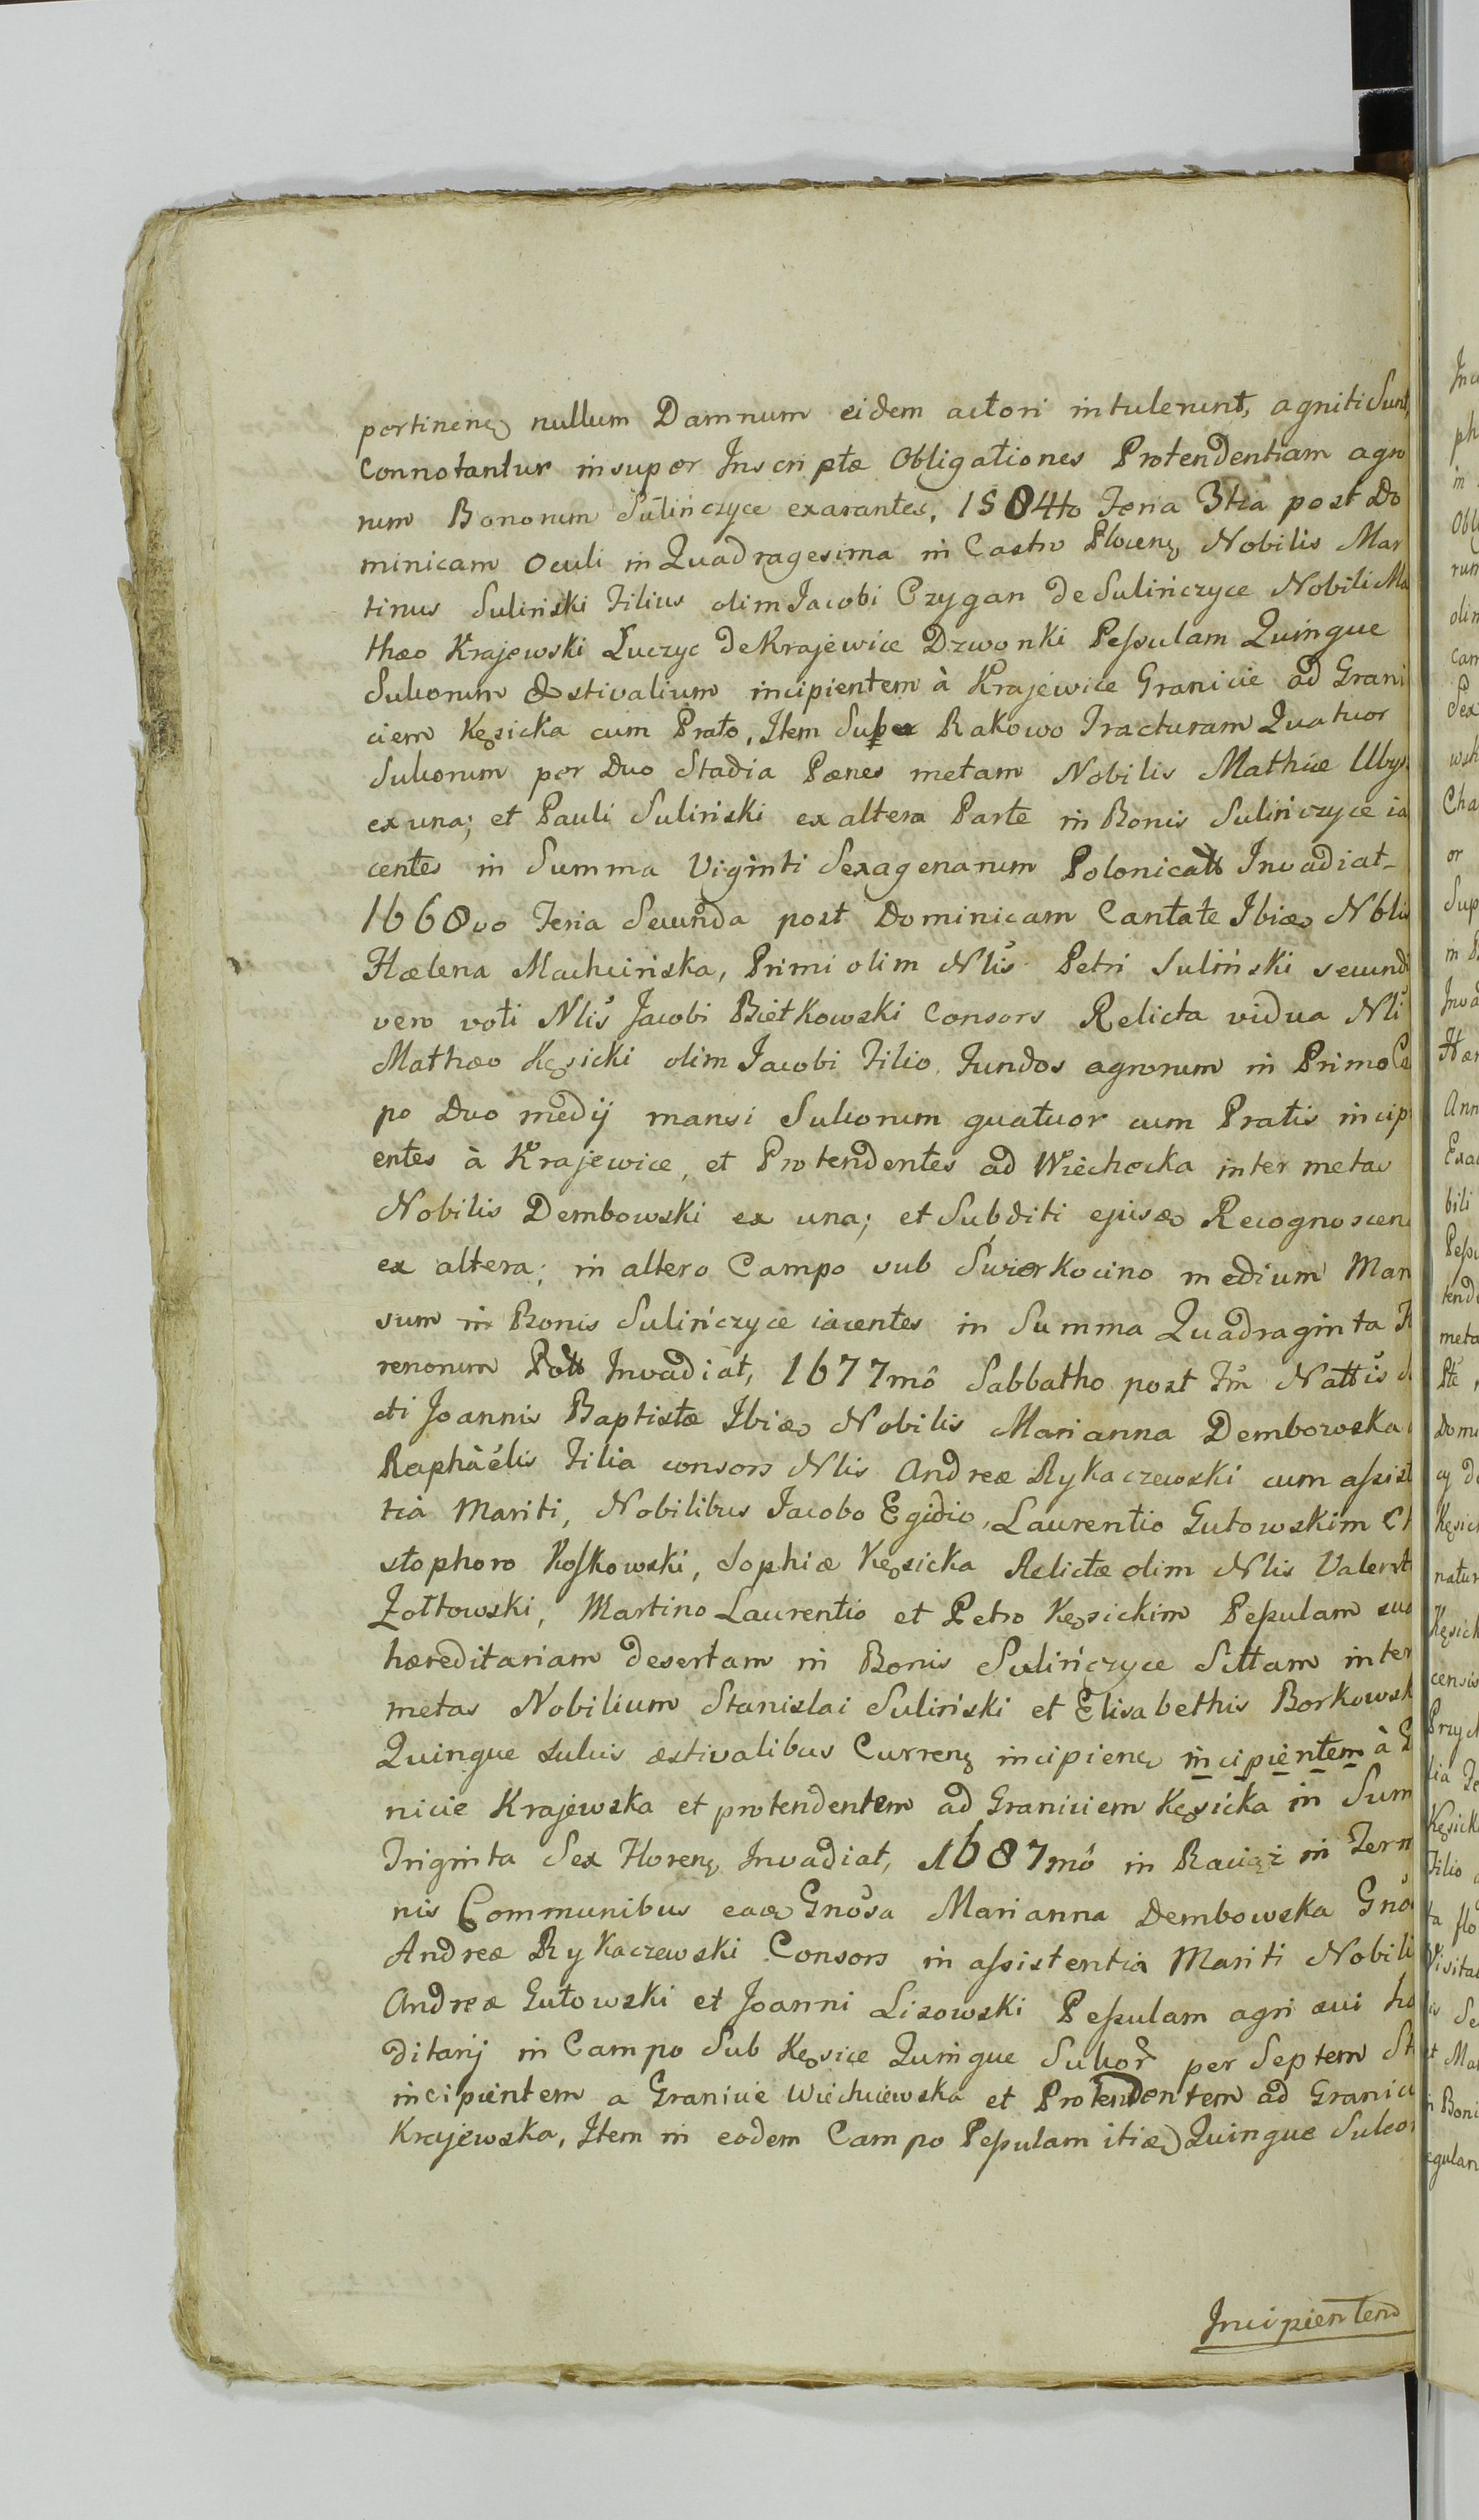 pertinenę nullum Damnum eidem actori intulerunt, agniti Sunt,
Connotantur insuper Inscriptæ Obligationes Protendentiam agro
rum Bonorum Sulińczyce exarantes, 1584to Feria 3tia post Do
minicam Oculi in Quadragesima in Castro Plocenę Nobilis Mar
tinus Suliński Filius olim Jacobi Czygan de Sulińczyce Nobili Ma
thæo Krajewski Łuczyc de Krajewice Dzwonki Peſsulam Quinque
Sulcorum Æstivalium incipientem à Krajewice Granicie ad Grani
ciem Kęsicka cum Prato, Item Super Rakowo Fracturam Quatuor
Sulcorum per Duo Stadia Pænes metam Nobilis Mathiæ Ubys
ex una; et Pauli Suliński ex altera Parte in Bonis Sulińczyce ia
centes in Summa Viginti Sexagenarum Polonicatt Invadiat-
1668vo Feria Secunda post Dominicam Cantate Ibidæ Nblis
Hælena Machcińska, Primi olim Nlis Petri Suliński secundi
vero voti Nlis Jacobi Bietkowski Consors Relicta vidua Nli
Mathæo Kęsicki olim Jacobi Filio. Fundos agrorum in Primo Ca
po Duo medij mansi Sulcorum quatuor cum Pratis incipi
entes à Krajewice, et Protendentes ad Wiechocka inter metas
Nobilis Dembowski ex una; et Subditi ejusdæ Recognoscen
ex altera; in altero Campo sub Swierkocino medium Man
sum in Bonis Sulińczyce iacentes in Summa Quadraginta Fl
renorum Pott Invadiat, 1677mô Sabbatho post Fm Nattis S
cti Joannis Baptistæ Ibiæ Nobilis Marianna Dembowska
Raphàélis Filia consors Nlis Andreæ Rykaczewski cum aſsist
tià Mariti, Nobilibus Jacobo Egidio, Laurentio Gutowskim Ch
stophoro Koſkowski, Sophiæ Kęsicka Relictæ olim Nlis Valent
Zołtowski, Martino Laurentio et Petro Kęsickim Peſsulam sua
hæreditariam desertam in Bonis Sulińczyce Sittam inter
metas Nobilium Stanislai Suliński et Elisabethis Borkowsk
Quinque sulcis æstivalibus Currenę incipienę incipientem à G
nicie Krajewska et protendentem ad Graniciem Kęsicka in Sum
Triginta Sex Florenę Invadiat, 1687mô in Raciąż in Term
nis Communibus eadæ Gnosa Marianna Dembowska Gno
Andreæ Rykaczewski Consors in aſsistentia Mariti Nobili
Andreæ Gutowski et Joanni Lisowski Peſsulam agri sui hæ
ditarij in Campo Sub Kęsice Quinque Sulcor per Septem St
incipientem a Granicie Wiechciewska et Protendentem ad Granici
Krajewska, Item in eodem Campo Peſsulam itiæ Quinque Sulcor
Incipientem